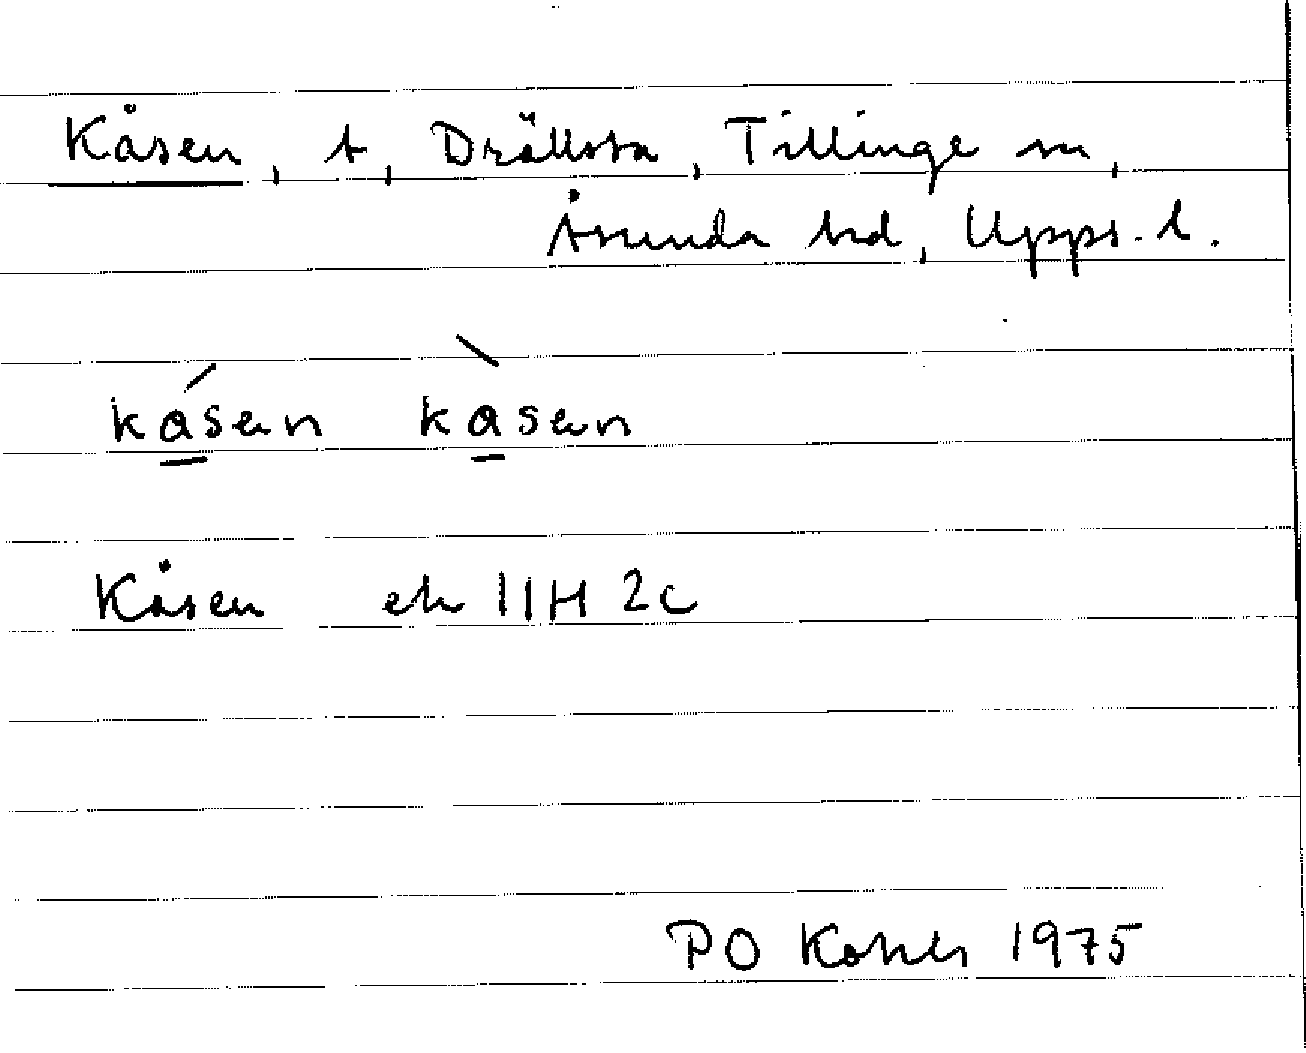 Kåsen, t, Drällsta, Tillinge sn,
Åsunda hd, Upps. l.
kåsen kasen
Kåsen ek 11H 2c
PO 1975